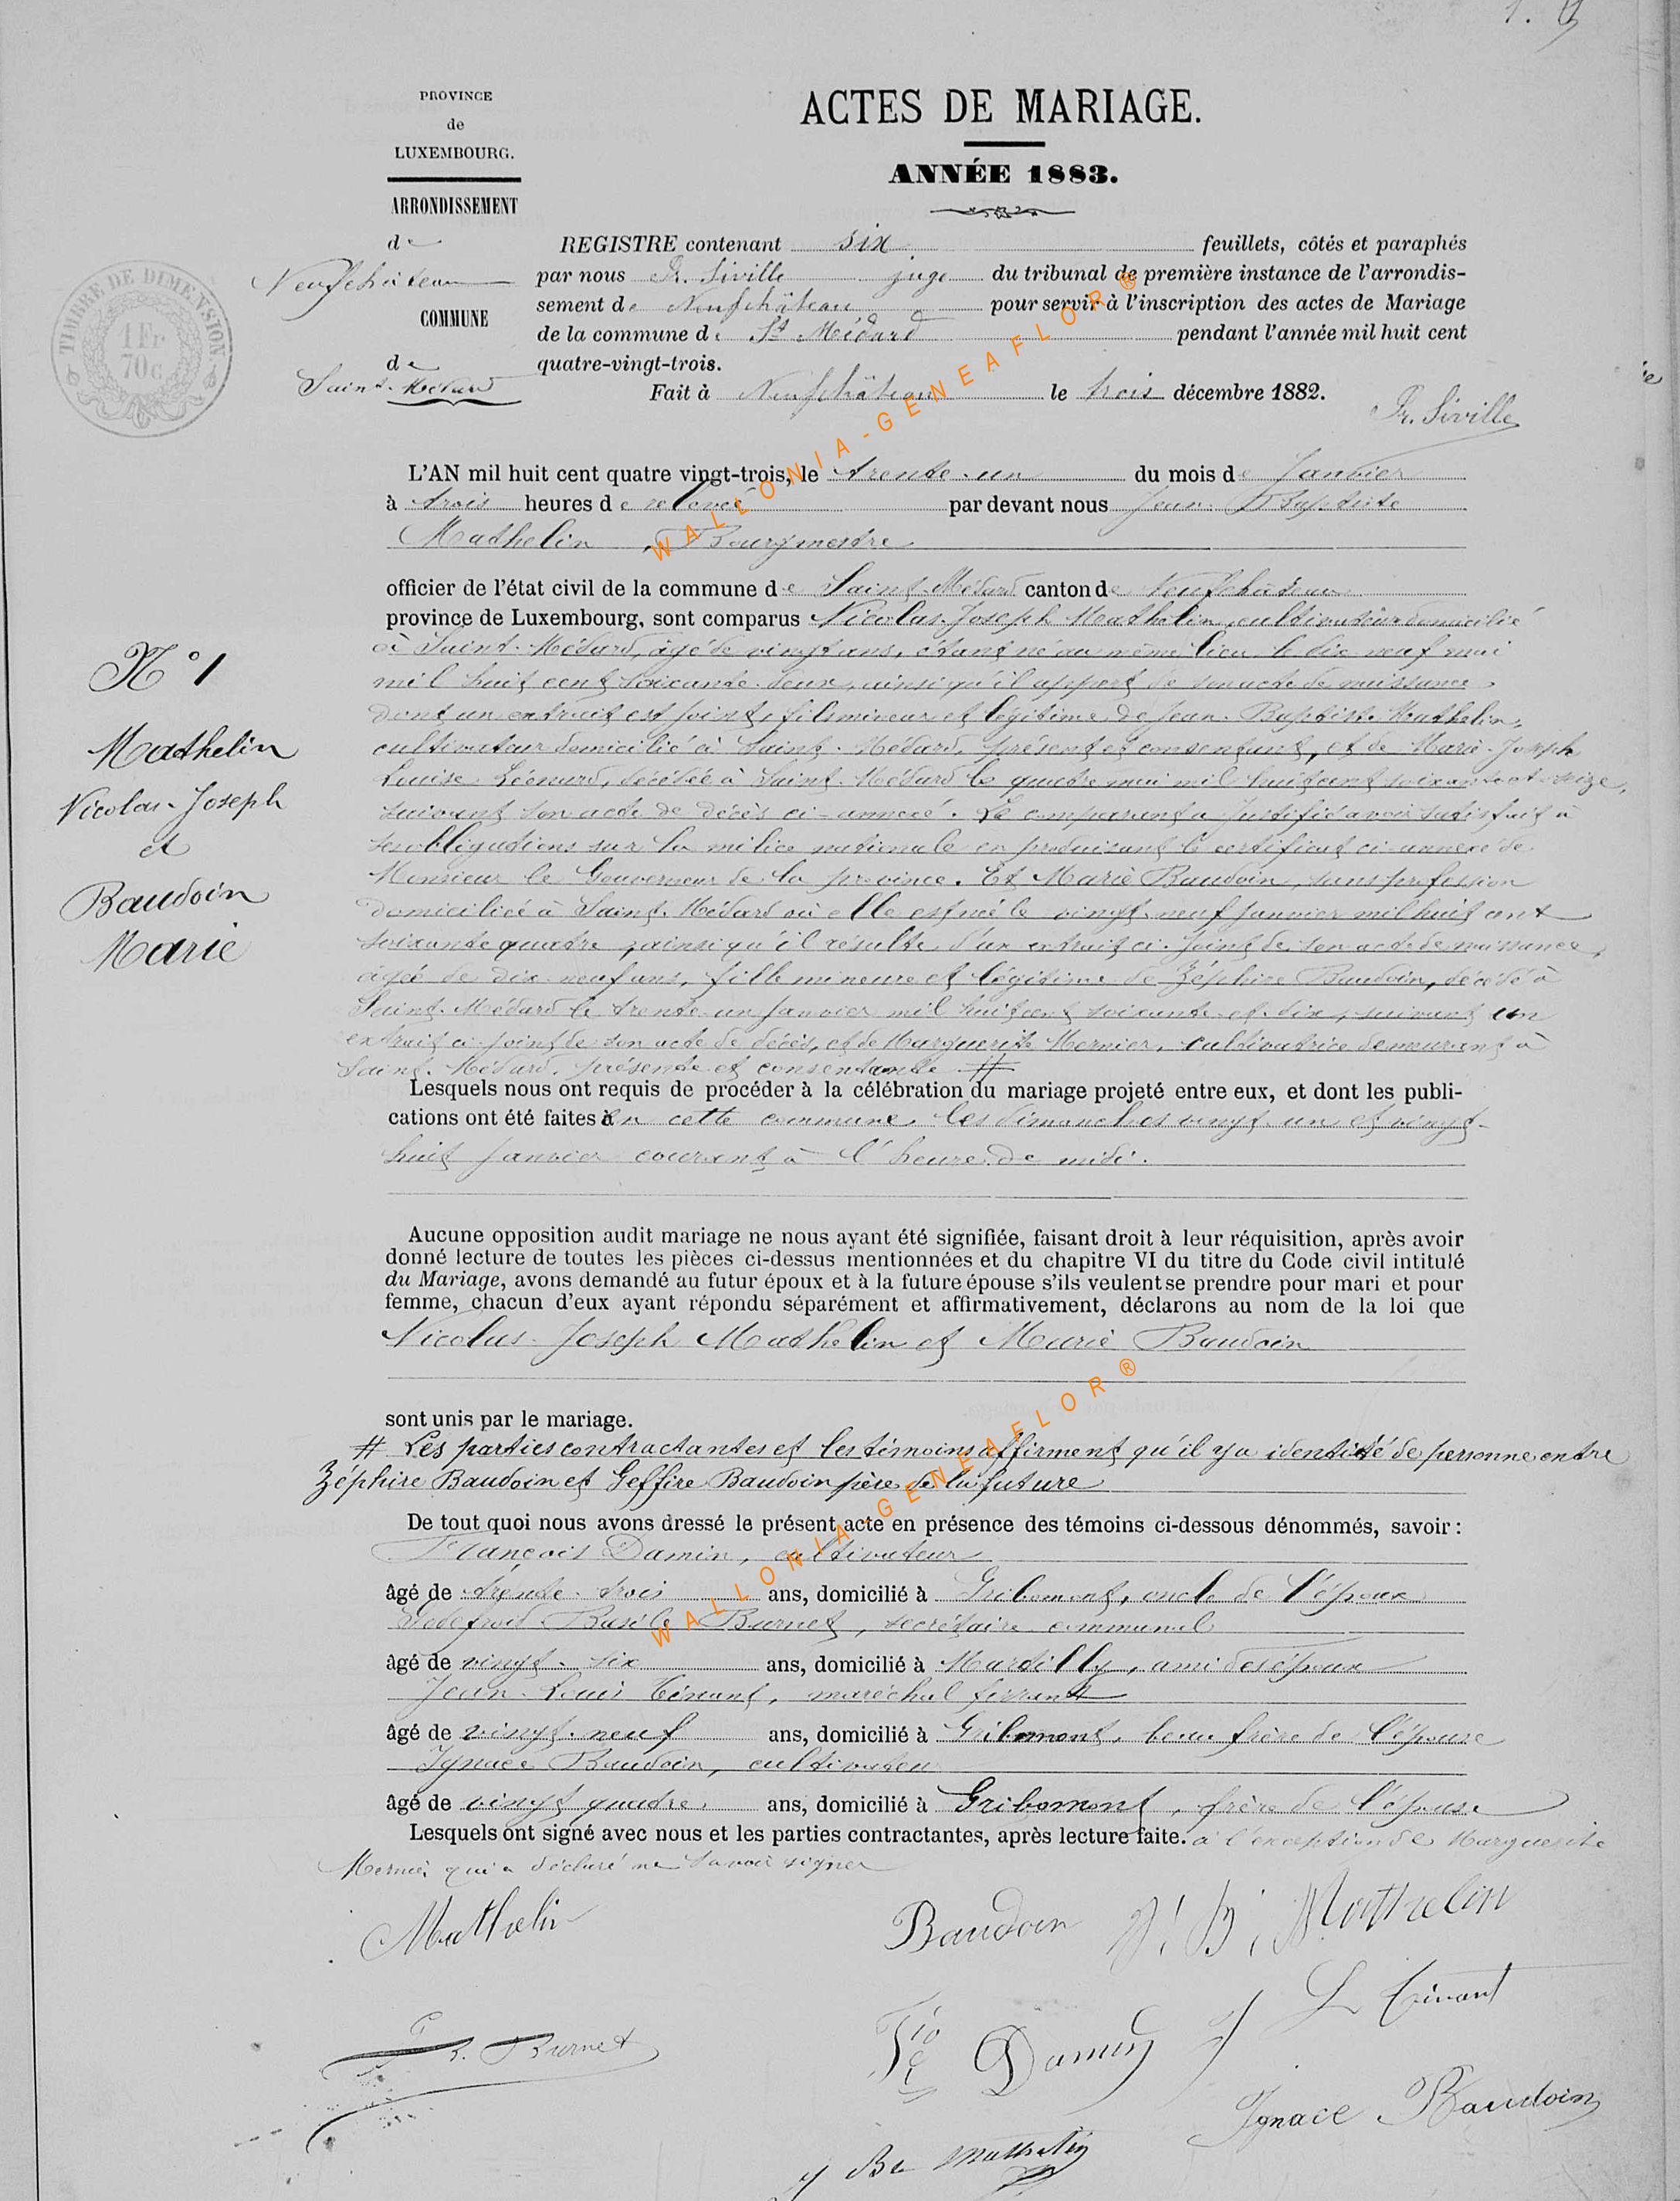 PROVINCE
de
LUXEMBOURG.
ARRONDISSEMENT
de
Neufchâteau
COMMUNE
de
Saint-Médard
TIMBRE DE DIMENSION
1 Fr
70 c
ACTES DE MARIAGE.
ANNÉE 1883.
REGISTRE contenant six feuillets, côtés et paraphés
par nous Siville juge du tribunal de première instance de l'arrondis-
sement de Neufchâteau pour servir à l'inscription des actes de Mariage
de la commune de St Médard pendant l'année mil huit cent
quatre-vingt-trois.
Fait à Neufchâteau le trois décembre 1882.
Siville
L'AN mil huit cent quatre vingt-trois, le trente-un du mois de Janvier
à trois heures de relevée par devant nous Jean Baptiste
Mathelin, Bourgmestre
officier de l'état civil de la commune de Saint-Médard canton de Neufchâteau
province de Luxembourg, sont comparus Nicolas-Joseph Mathelin, cultivateur domicilié
à Saint-Médard, âgé de vingt ans, étant né au même lieu le dix neuf mai
mil huit cent soixante-deux, ainsi qu'il appert de son acte de naissance
dont un extrait est joint, fils mineur et légitime de Jean-Baptiste Mathelin,
cultivateur domicilié à Saint-Médard, présent et consentant, et de Marie-Joseph
Louise Léonard, décédée à Saint-Médard le quatre mai mil huit cent soixante et seize,
suivant son acte de décès ci-annexé. Le comparant a justifié avoir satisfait à
ses obligations sur la milice nationale en produisant le certificat ci-annexé de
Monsieur le Gouverneur de la province. Et Marie Baudoin, sans profession
domiciliée à Saint-Médard où elle est née le vingt-neuf janvier mil huit cent
soixante quatre, ainsi qu'il résulte d'un extrait ci-joint de son acte de naissance,
âgée de dix-neuf ans, fille mineure et légitime de Zéphire Baudoin, décédé à
Saint-Médard le trente-un janvier mil huit cent soixante-et-dix, suivant un
extrait ci-joint de son acte de décès, et de Marguerite Mernier, cultivatrice demeurant à
Saint-Médard, présente et consentante #
Lesquels nous ont requis de procéder à la célébration du mariage projeté entre eux, et dont les publi-
cations ont été faites en cette commune, les dimanches vingt-un et vingt-
huit janvier courant à l'heure de midi.
Aucune opposition audit mariage ne nous ayant été signifiée, faisant droit à leur réquisition, après avoir
donné lecture de toutes les pièces ci-dessus mentionnées et du chapitre VI du titre du Code civil intitulé
du Mariage, avons demandé au futur époux et à la future épouse s'ils veulent se prendre pour mari et pour
femme, chacun d'eux ayant répondu séparément et affirmativement, déclarons au nom de la loi que
Nicolas-Joseph Mathelin et Marie Baudoin
sont unis par le mariage.
# Les parties contractantes et les témoins affirment qu'il y a identité de personne entre
Zéphire Baudoin et Geffire Baudoin père de la future
De tout quoi nous avons dressé le présent acte en présence des témoins ci-dessous dénommés, savoir :
François Damin, cultivateur
âgé de trente-trois ans, domicilié à Gribomont, oncle de l'époux
Basile Burnet, secrétaire communal
âgé de vingt-six ans, domicilié à Martilly, ami des époux
Jean-Louis Tinant, maréchal ferrant
âgé de vingt-neuf ans, domicilié à Gribomont, beau frère de l'épouse
Ignace Baudoin, cultivateur
âgé de vingt quatre ans, domicilié à Gribomont, frère de l'épouse
Lesquels ont signé avec nous et les parties contractantes, après lecture faite. à l'exception de Marguerite
Mernier qui a déclaré ne savoir signer
Mathelin
Baudoin
J. B. Mathelin
L Tinant
Burnet
Damin
Ignace Baudoin
J Bte Mathelin
N° 1
Mathelin
Nicolas-Joseph
et
Baudoin
Marie
WALLONIA-GENEAFLOR®
WALLONIA-GENEAFLOR®